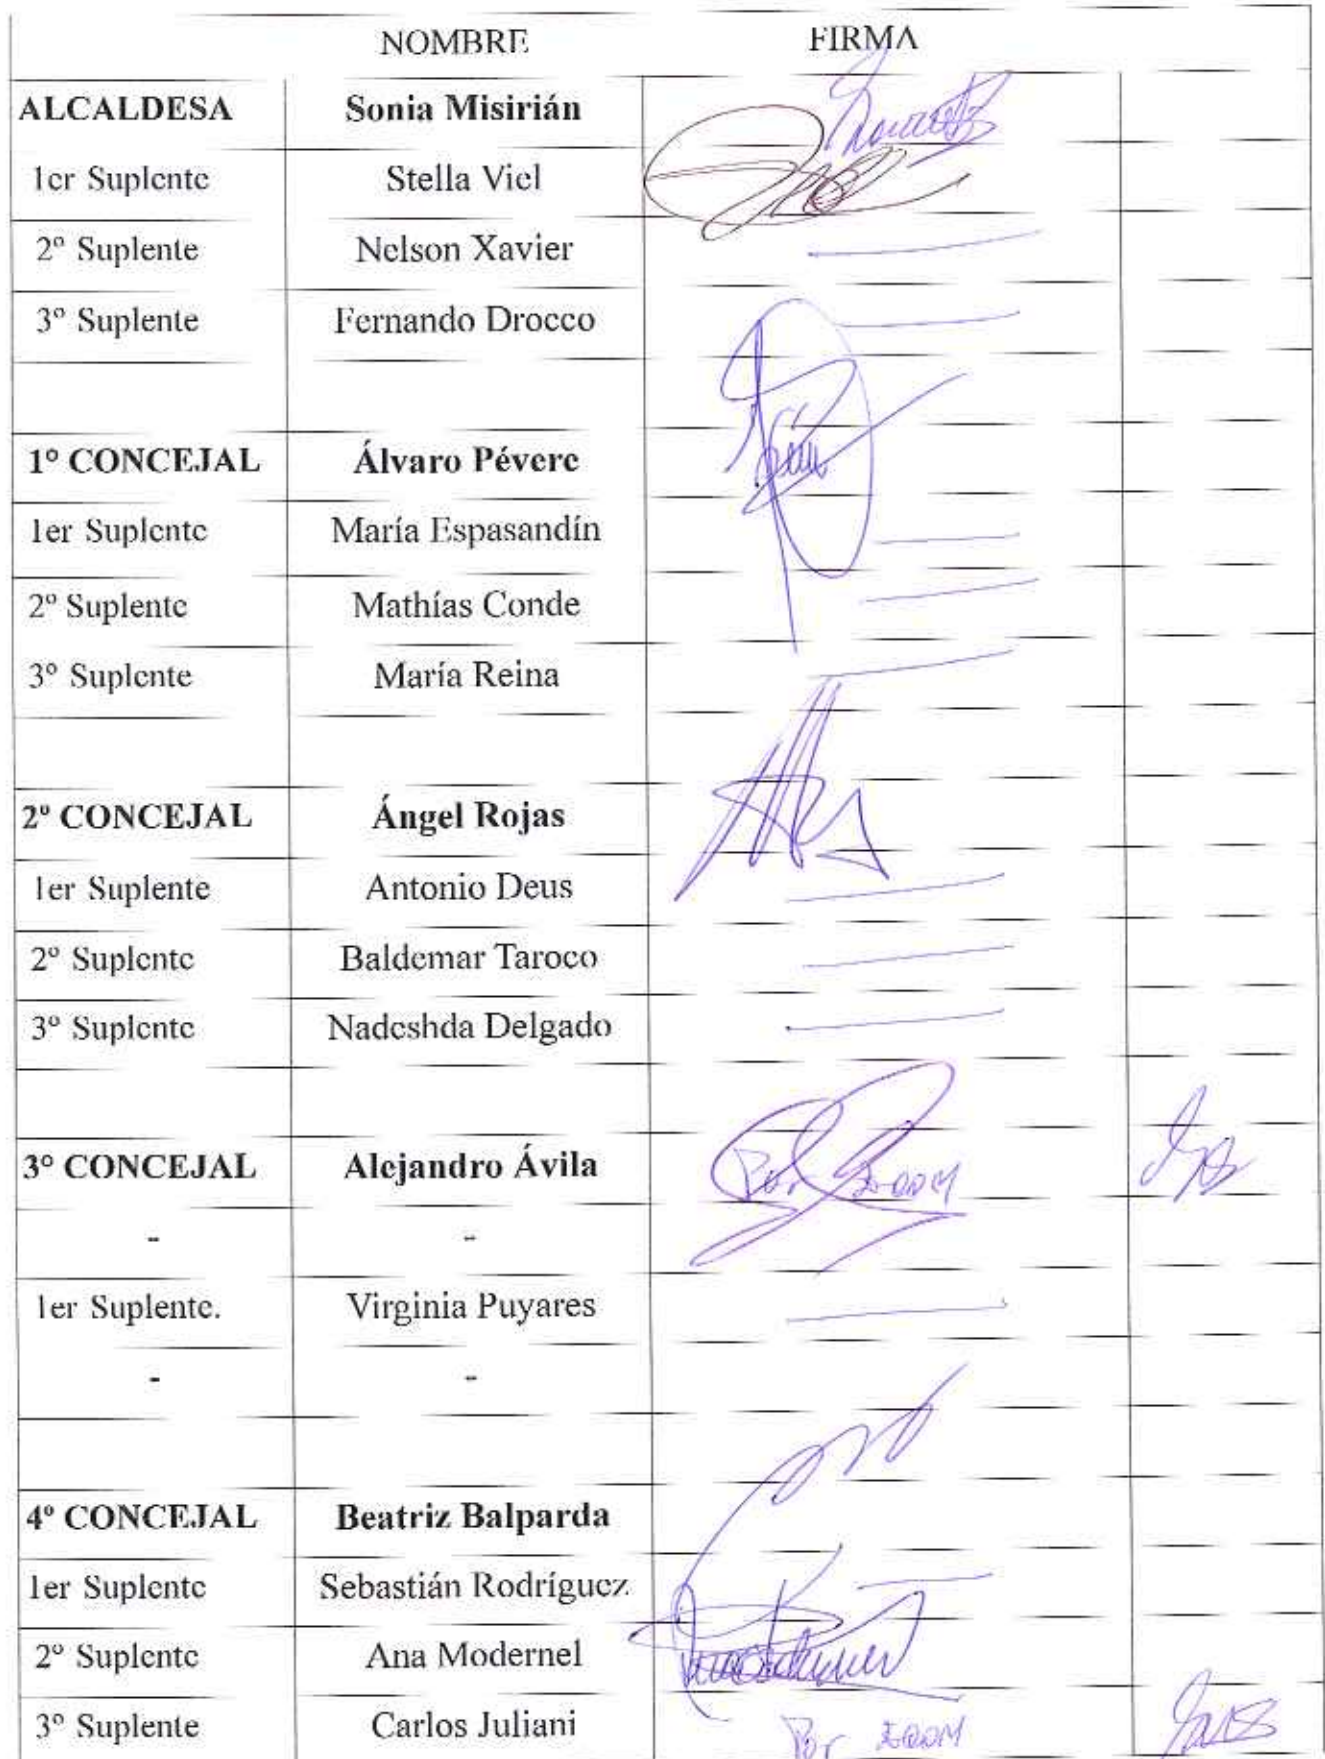 NOMBRE FIRMA
ALCALDESA Sonia Misirián
1er Suplente Stella Viel
2º Suplente Nelson Xavier
3º Suplente Fernando Drocco
1º CONCEJAL Álvaro Pévere
1er Suplente María Espasandín
2º Suplente Mathías Conde
3º Suplente María Reina
2º CONCEJAL Ángel Rojas
1er Suplente Antonio Deus
2º Suplente Baldemar Taroco
3º Suplente Nadeshda Delgado
3º CONCEJAL Alejandro Ávila Por ZOOM
- -
1er Suplente. Virginia Puyares
- -
4º CONCEJAL Beatriz Balparda
1er Suplente Sebastián Rodríguez
2º Suplente Ana Modernel
3º Suplente Carlos Juliani Por ZOOM